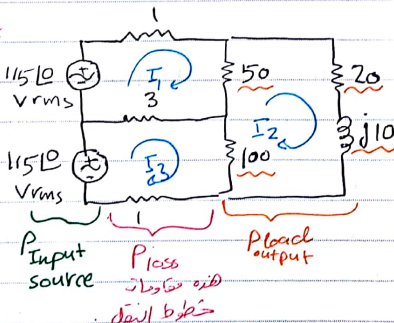 1
115∠0
Vrms
I1
50
20
3
I2
j10
115∠0
Vrms
I3
100
1
PInput
source
Ploss
هذه مقاومات
خطوط النقل.
Pload
output